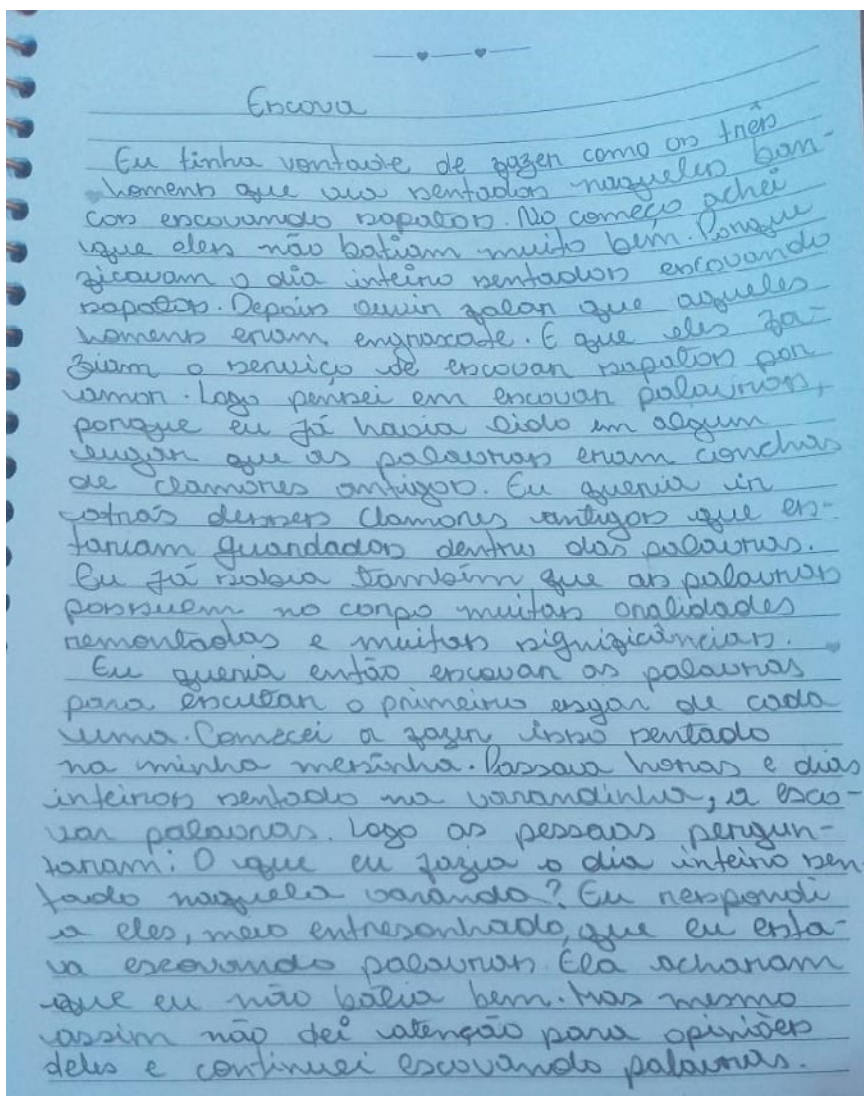 Escova
Eu tinha vontade de fazer como os três
homens que via sentados naqueles ban-
cos escovando sapatos. No começo achei
que eles não batiam muito bem. Porque
ficavam o dia inteiro sentados escovando
sapatos. Depois ouvir falar que aqueles
homens eram engraxate. E que eles fa-
ziam o serviço de escovar sapatos por
amor. Logo pensei em escovar palavras,
porque eu já havia lido em algum
lugar que as palavras eram conchas
de clamores antigos. Eu queria ir
atrás desses clamores antigos que es-
tariam guardados dentro das palavras.
Eu já sabia também que as palavras
possuem no corpo muitas oralidades
remontadas e muitas significâncias.
Eu queria então escovar as palavras
para escutar o primeiro esgar de cada
uma. Comecei a fazer isso sentado
na minha mesinha. Passava horas e dias
inteiros sentado na varandinha, a esco-
var palavras. Logo as pessoas pergun-
taram: O que eu fazia o dia inteiro sen-
tado naquela varanda? Eu respondi
a eles, meio entresonhado, que eu esta-
va escovando palavras. Ela acharam
que eu não batia bem. Mas mesmo
assim não dei atenção para opiniões
deles e continuei escovando palavras.